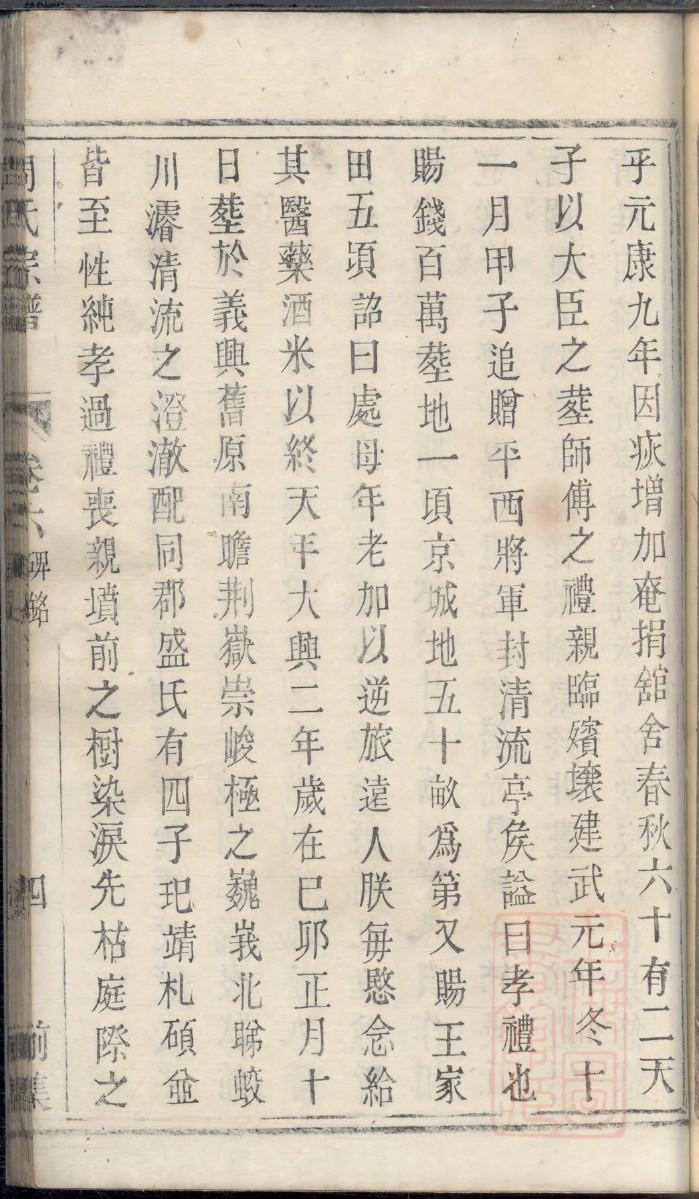 乎元康九年因疢增加奄捐舘舍春秋六十有二天
子以大臣之塟師傅之禮親臨殯壤建武元年冬十
一月甲子追贈平西將軍封清流亭侯謚曰孝禮也
賜錢百萬塟地一頃京城地五十畝爲第又賜王家
田五頃詔曰處母年老加以逆旅遠人朕每愍念給
其醫藥酒米以終天年大興二年歲在己卯正月十
日塟於義興舊原南瞻荆嶽崇峻極之巍峩北睇蛟
川濬清流之澄澈配同郡盛氏有四子玘靖札碩並
皆至性純孝過禮喪親墳前之樹染淚先枯庭際之
周氏宗譜 卷六 碑銘 四 前集